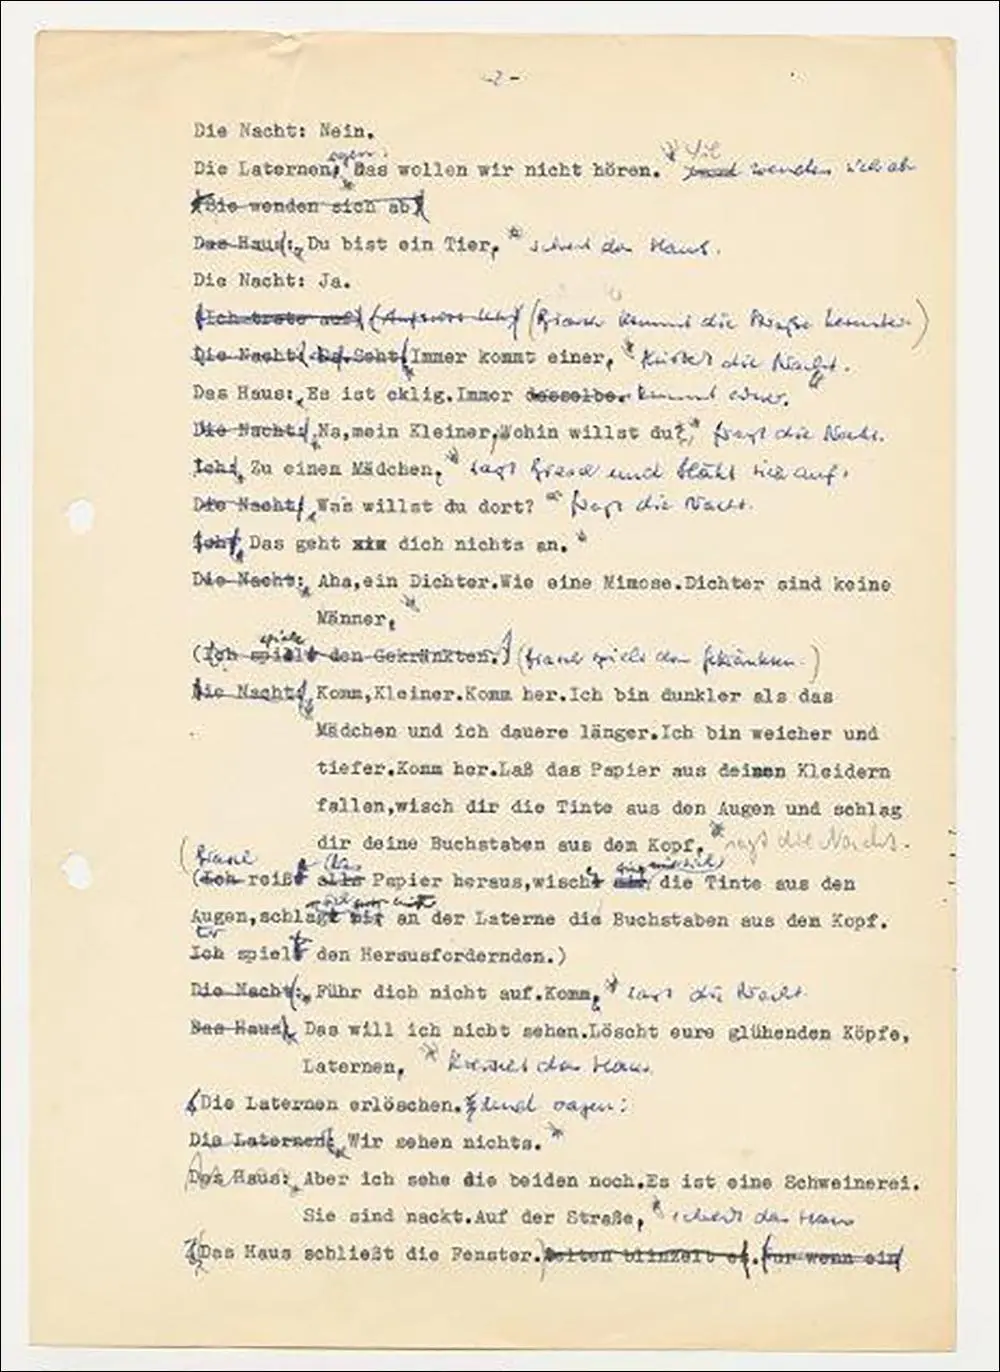 -2-
Die Nacht: Nein.
Die Laternen, sagen: Das wollen wir nicht hören. und wenden sich ab
(Sie wenden sich ab)
Das Haus: Du bist ein Tier, schreit das Haus.
Die Nacht: Ja.
(Ich trete auf) (kommt die Straße herunter)
Die Nacht: Da. Seht, Immer kommt einer, flüstert die Nacht.
Das Haus: Es ist eklig.Immer dasselbe. kommt einer.
Die Nacht: Na,mein Kleiner,Wohin willst du?, fragt die Nacht.
Ich: Zu einem Mädchen, sagt und bläht sich auf.
Die Nacht: Was willst du dort? fragt die Nacht.
Ich: Das geht xix dich nichts an.
Die Nacht: Aha,ein Dichter.Wie eine Mimose.Dichter sind keine
Männer,
spiele
(Ich spielt den Gekränkten.) (spielt den Gekränkten.)
Die Nacht: Komm,Kleiner.Komm her.Ich bin dunkler als das
Mädchen und ich dauere länger.Ich bin weicher und
tiefer.Komm her.Laß das Papier aus deinen Kleidern
fallen,wisch dir die Tinte aus den Augen und schlag
dir deine Buchstaben aus dem Kopf, sagt die Nacht.
(Ich reißt alle das Papier heraus,wischt mir die Tinte aus den
Augen,schlägt mir an der Laterne die Buchstaben aus dem Kopf.
Er
Ich spielt den Herausfordernden.)
Die Nacht: Führ dich nicht auf.Komm, sagt die Nacht.
Das Haus: Das will ich nicht sehen.Löscht eure glühenden Köpfe,
Laternen, das Haus.
(Die Laternen erlöschen. und sagen:
Die Laternen: Wir sehen nichts.
Das Haus: Aber ich sehe die beiden noch.Es ist eine Schweinerei.
Sie sind nackt.Auf der Straße, schreit das Haus
(Das Haus schließt die Fenster.) Selten blinzelt es. Nur wenn ein